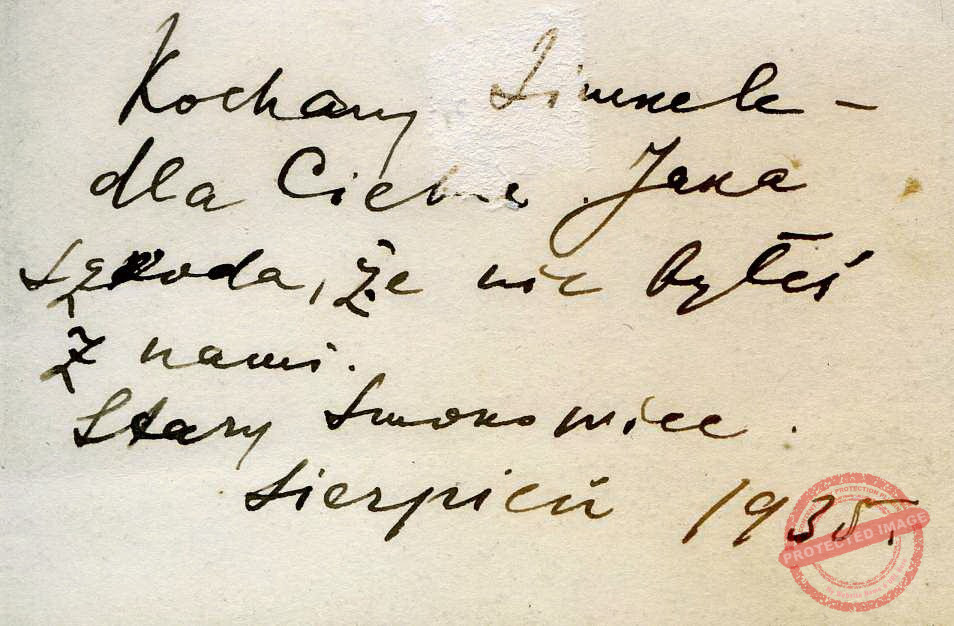 Kochany Zimnek –
dla Ciebie. Jaka
szkoda, że nie byłeś
z nami.
Stary Smokowiec.
Sierpień 1935.
PROTECTED IMAGE